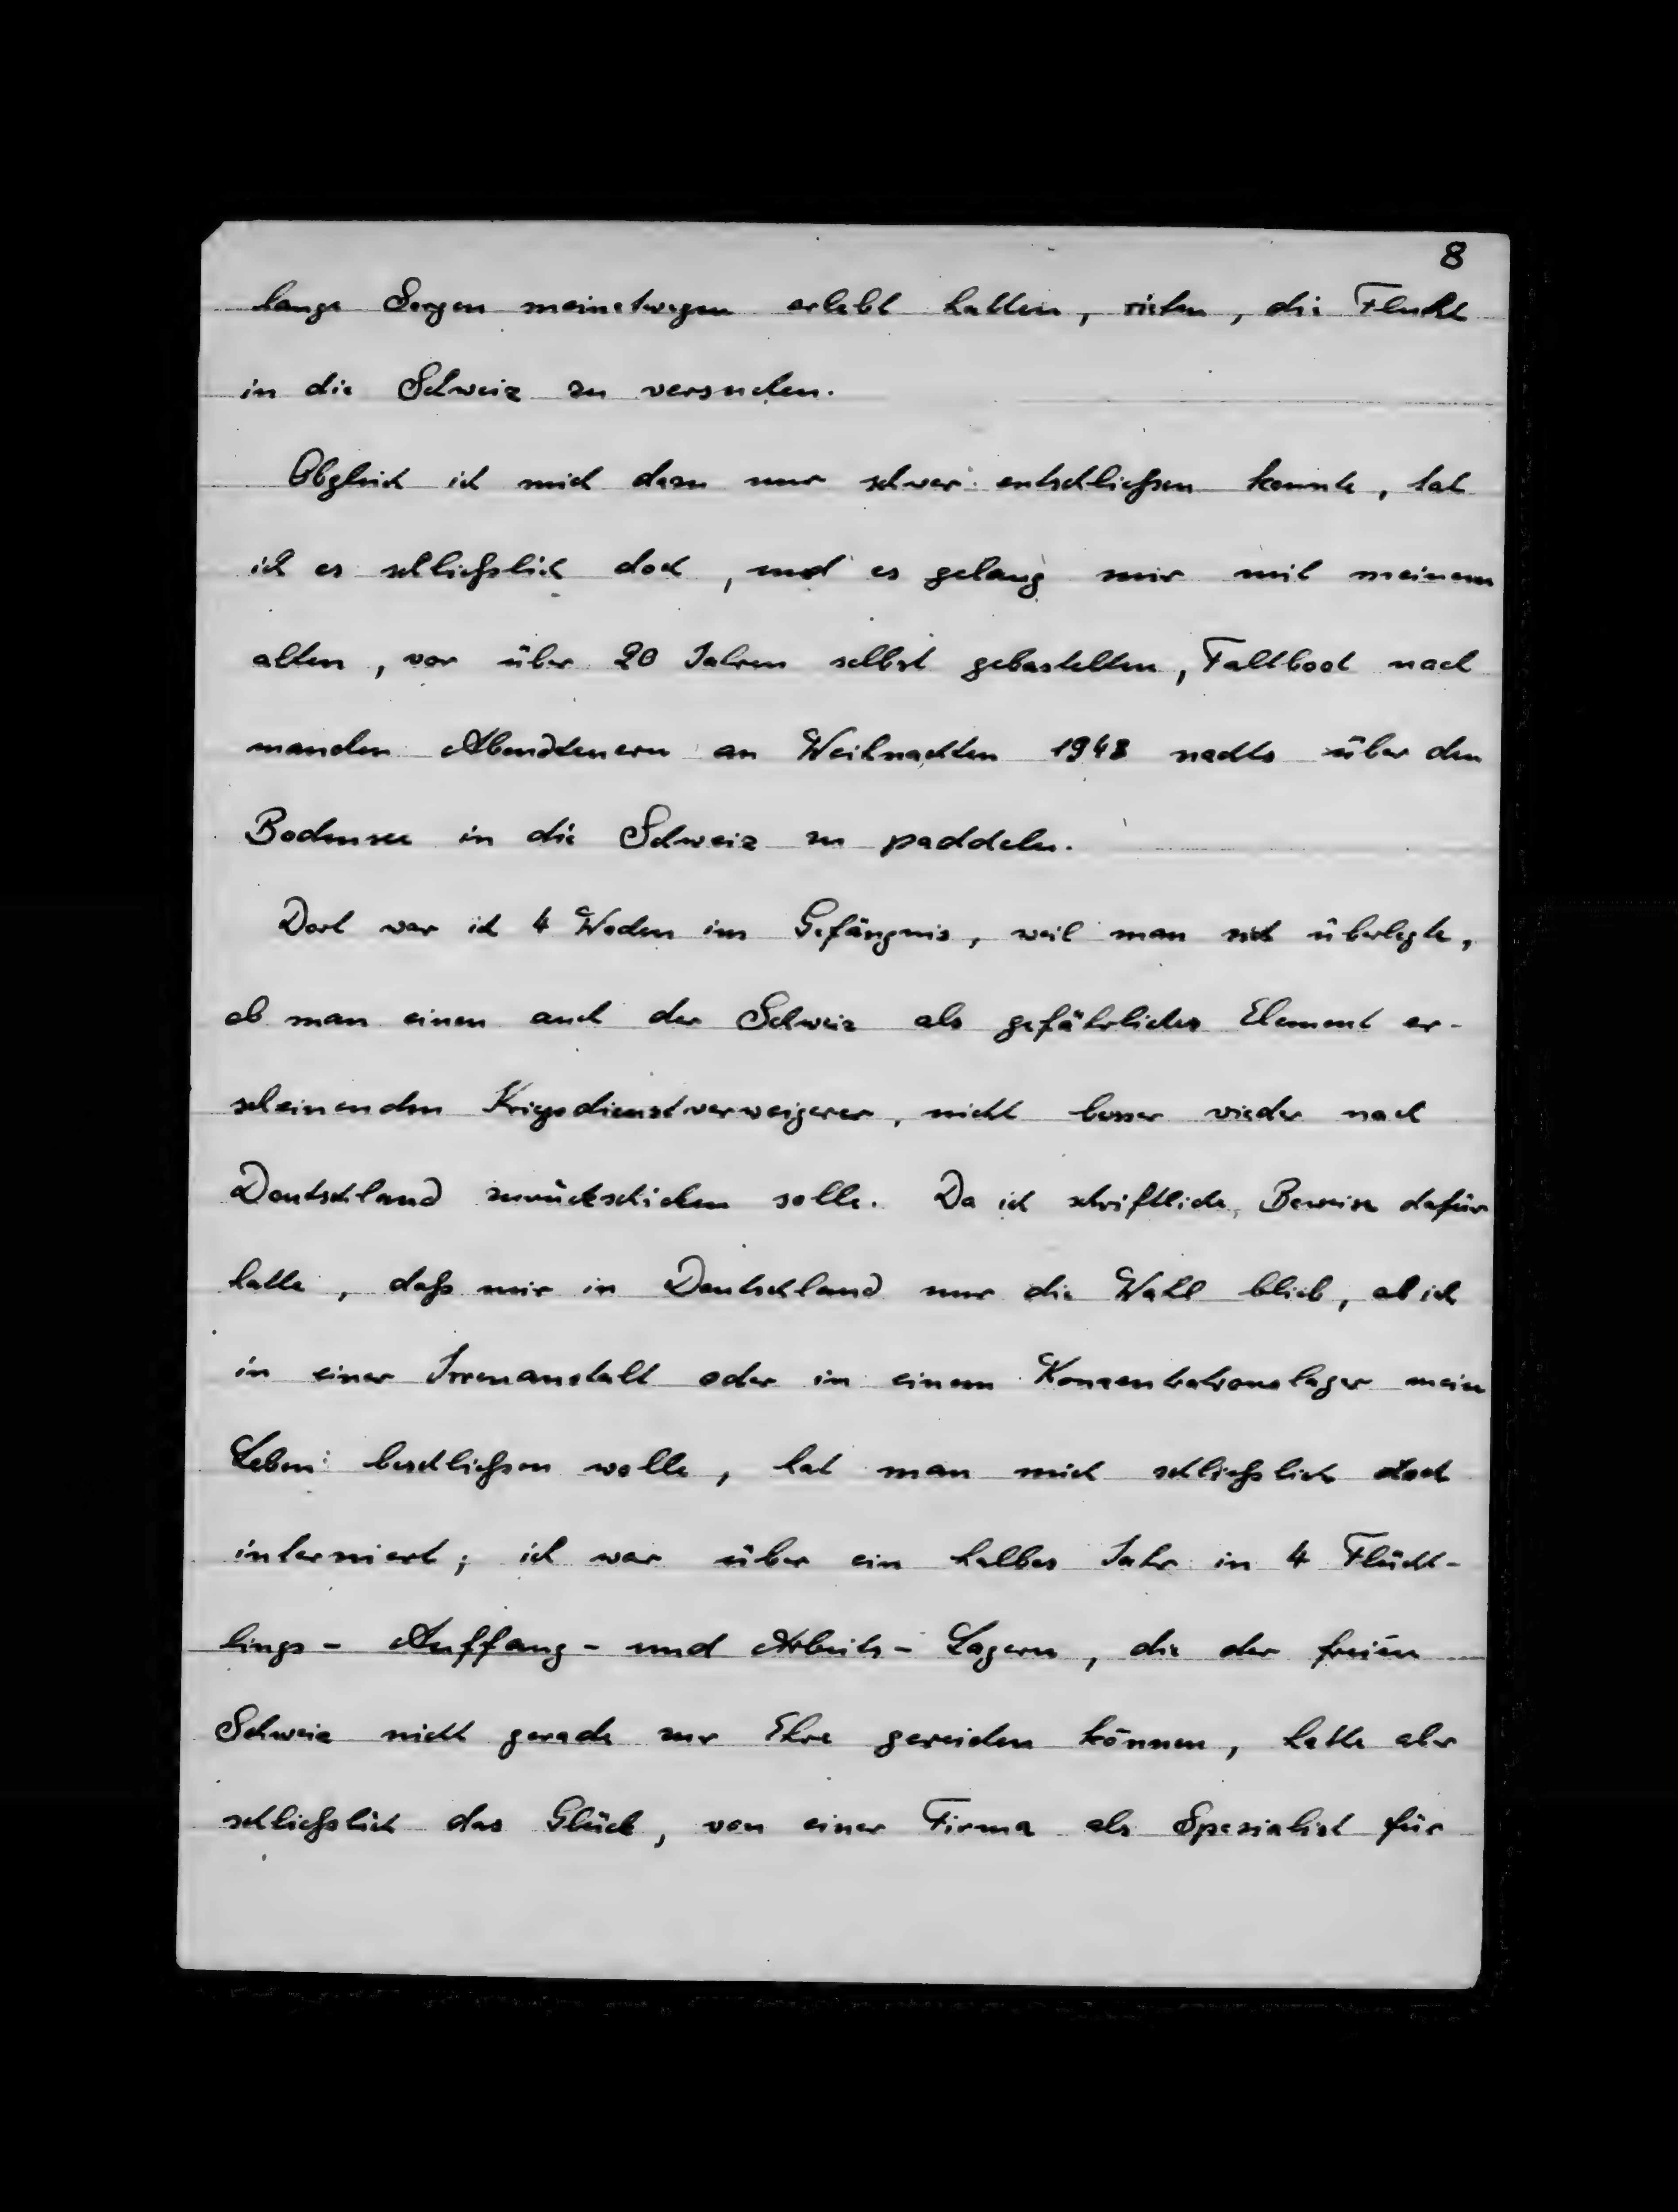 8
lange Sorgen meinetwegen erlebt hatten, rieten, die Flucht
in die Schweiz zu versuchen.
Obgleich ich mich dazu nur schwer entschließen konnte, tat
ich es schließlich doch, und es gelang mir mit meinem
alten, vor über 20 Jahren selbst gebastelten, Faltboot nach
manchen Abendteuern an Weihnachten 1943 nachts über den
Bodensee in die Schweiz zu paddeln.
Dort war ich 4 Wochen im Gefängnis, weil man sich überlegte,
ob man einen auch der Schweiz als gefährliches Element er-
scheinenden Kriegsdienstverweigerer, nicht besser wieder nach
Deutschland zurückschicken solle. Da ich schriftliche Beweise dafür
hatte, daß mir in Deutschland nur die Wahl blieb, ob ich
in einer Irrenanstalt oder in einem Konzentrationslager mein
Leben beschließen wolle, hat man mich schließlich doch
interniert; ich war über ein halbes Jahr in 4 Flücht-
lings- Auffang- und Arbeits- Lagern, die der freien
Schweiz nicht gerade zur Ehre gereichen können, hatte aber
schließlich das Glück, von einer Firma als Spezialist für